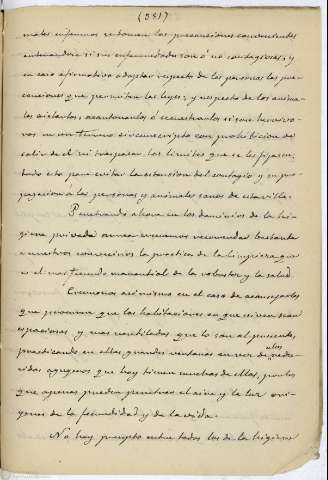 (281)
males enfermos se toman las precauciones convenientes
entenderse si sus enfermedades son ó no contagiosas; y
en caso afirmativo adoptar respecto de las personas las pre-
cauciones que permitan las leyes; y respecto de los anima-
les aislarlos, acordonarlos ó secuestrarlos si son herviro-
ros en un terreno circunscripto con prohibicion de
salir de él ni traspasar los limites que se les fijaran;
todo esto para evitar la estension del contagio y su pro-
pagacion á las personas y animales sanos de esta villa.
Penetrando ahora en los dominios de la hi-
giene privada nunca encarecemos recomendar bastante
a nuestros convecinos la practica de la limpieza que
es el mas fecundo manantial de la robustez y la salud.
Creemonos asimismo en el caso de aconsejarles
que procuren que las habitaciones en que viven sean
espaciosas, y mas ventiladas que lo son al presente,
practicando en ellas, grandes ventanas en vez de redu-
cidos agugeros que hoy tienen muchas de ellas, por los
que apenas pueden penetrar el aire y la luz ori-
genes de la fecundidad y de la vida.
No hay precepto entre todos los de la higiene